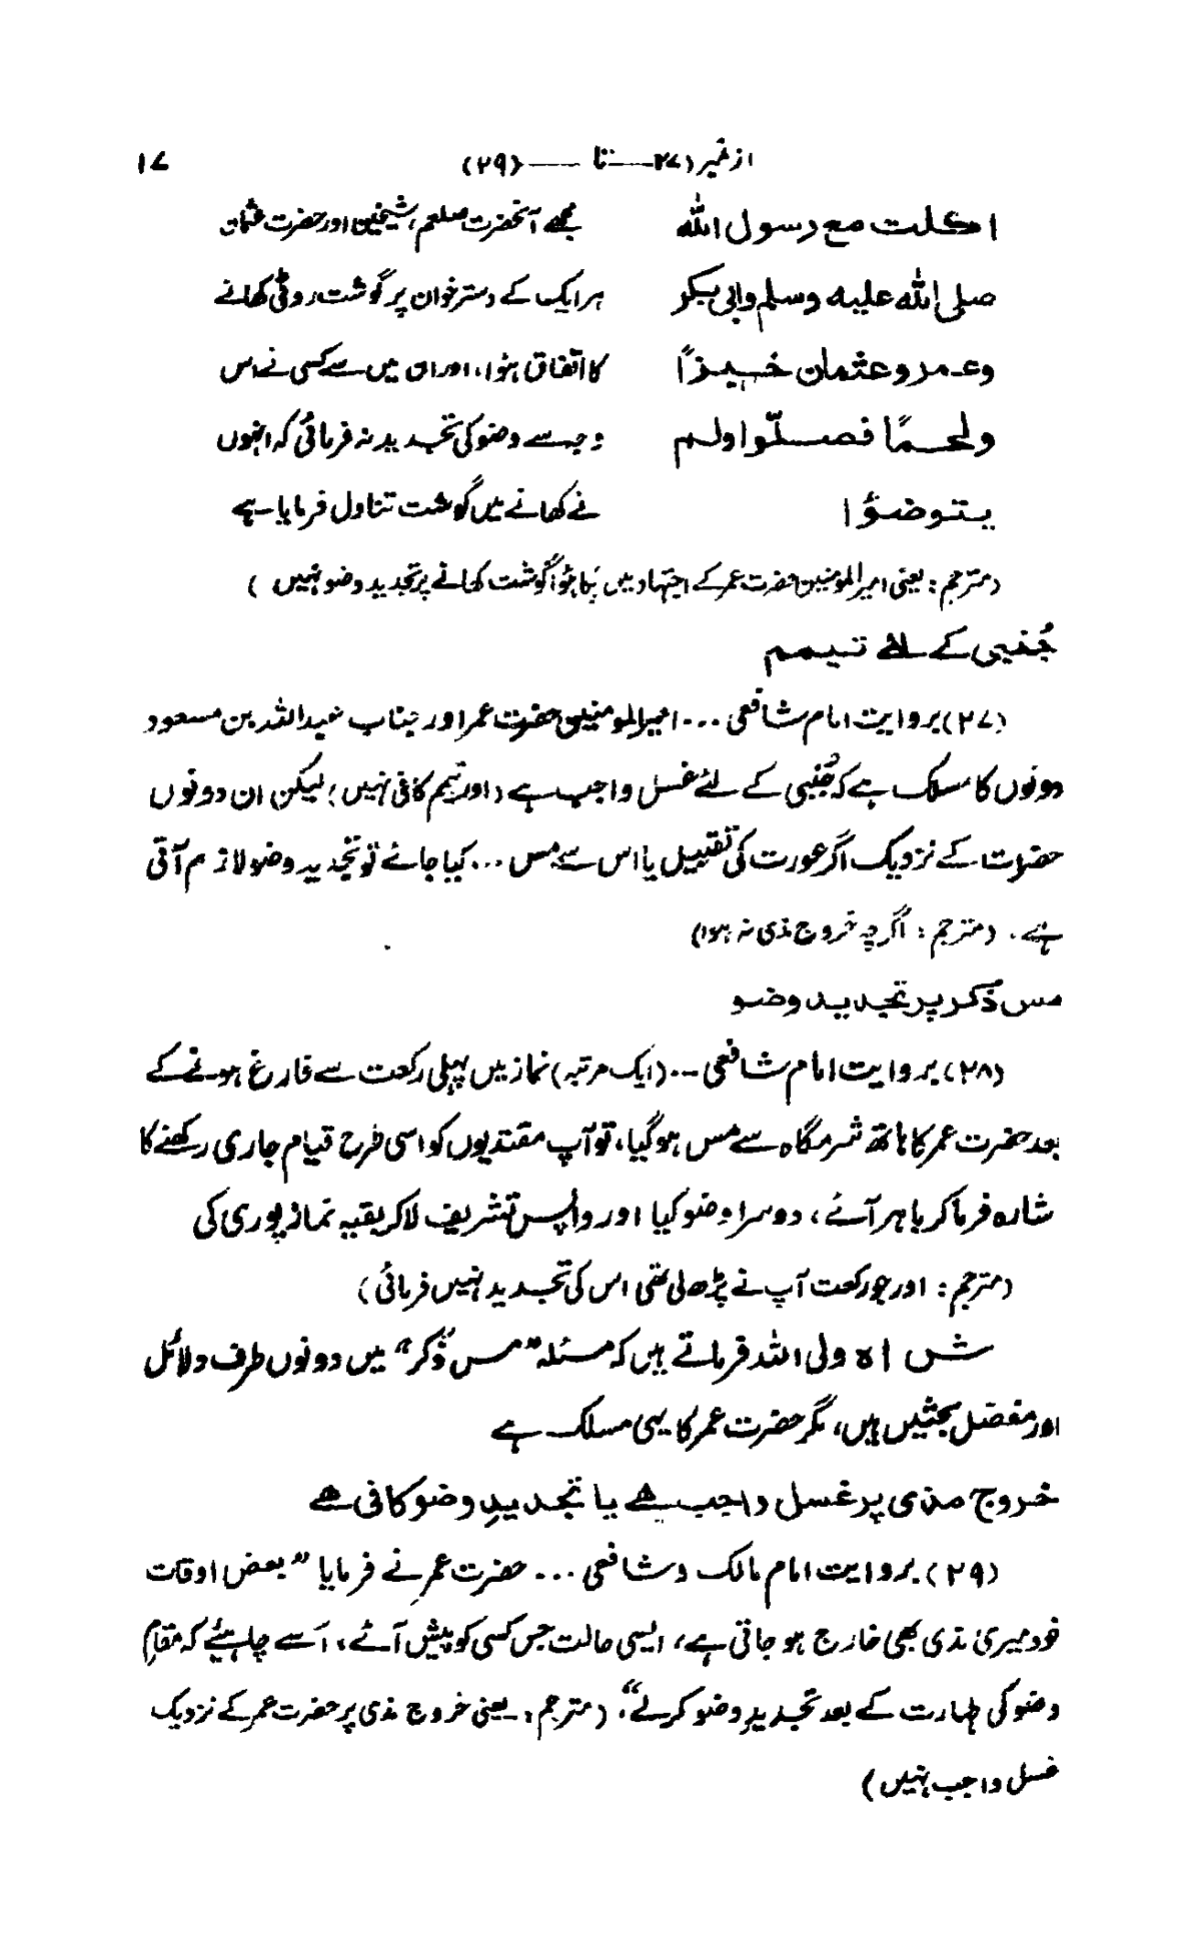 از نمبر (۲۷ — تا — ۲۹)
۱۷
اکلت مع رسول الله
صلی الله علیه وسلم وابی بکر
وعمر وعثمان خبزًا
ولحمًا فصلّوا ولم
یتوضؤا
مجھے آنحضرت صلعم، شیخین اور حضرت عثمان
ہر ایک کے دسترخوان پر گوشت روٹی کھانے
کا اتفاق ہؤا، اور ان میں سے کسی نے اس
وجہ سے وضو کی تجدید نہ فرمائی کہ انہوں
نے کھانے میں گوشت تناول فرمایا ہے
(مترجم: یعنی امیرالمومنین حضرت عمر کے اجتہاد میں پکا ہؤا گوشت کھانے پر تجدید وضو نہیں)
جُنبی کے لئے تیمم
(۲۷) بروایت امام شافعی ... امیرالمومنین حضرت عمر اور جناب عبداللہ بن مسعود
دونوں کا مسلک ہے کہ جُنبی کے لئے غسل واجب ہے (اور تیمم کافی نہیں) لیکن ان دونوں
حضرات کے نزدیک اگر عورت کی تقبیل یا اس سے مس ... کیا جائے تو تجدید وضو لازم آتی
ہے۔ (مترجم: اگرچہ خروج مذی نہ ہوا)
مس ذَکر پر تجدید وضو
(۲۸) بروایت امام شافعی ... (ایک مرتبہ) نماز میں پہلی رکعت سے فارغ ہونے کے
بعد حضرت عمر کا ہاتھ شرمگاہ سے مس ہوگیا، تو آپ مقتدیوں کو اسی طرح قیام جاری رکھنے کا
شارہ فرما کر باہر آئے، دوسرا وضو کیا اور واپس تشریف لا کر بقیہ نماز پوری کی
(مترجم: اور جو رکعت آپ نے پڑھ لی تھی اس کی تجدید نہیں فرمائی)
شاہ ولی اللہ فرماتے ہیں کہ مسئلہ "مس ذَکر" میں دونوں طرف دلائل
اور مفصل بحثیں ہیں، مگر حضرت عمر کا یہی مسلک ہے
خروج مذی پر غسل واجب ہے یا تجدیدِ وضو کافی ہے
(۲۹) بروایت امام مالک و شافعی ... حضرت عمر نے فرمایا "بعض اوقات
خود میری مذی بھی خارج ہو جاتی ہے، ایسی حالت جس کسی کو پیش آئے، اُسے چاہیئے کہ مقامِ
وضو کی طہارت کے بعد تجدیدِ وضو کرلے"، (مترجم: یعنی خروج مذی پر حضرت عمر کے نزدیک
غسل واجب نہیں)